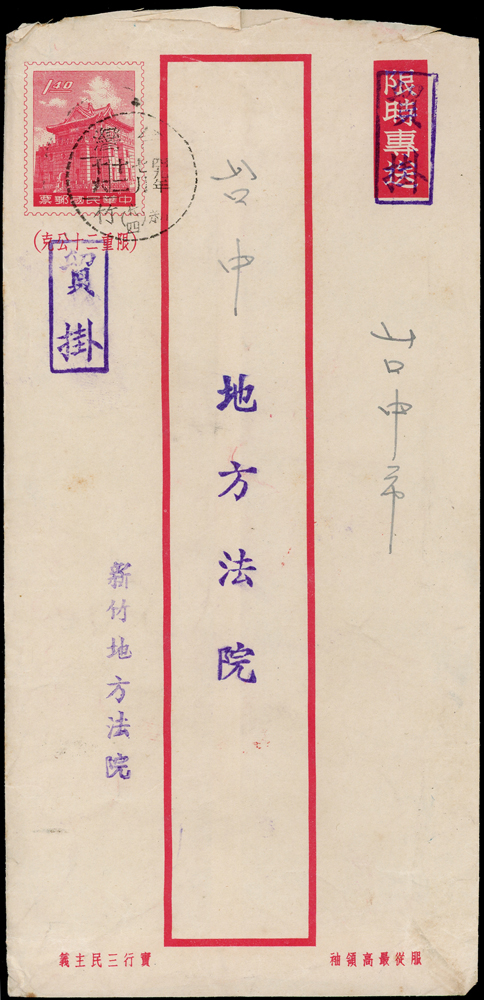 限時專送
貿掛
台中市
台中地方法院
1.40
中華民國郵票
(限重二十公克)
貿掛
新竹地方法院
服從最高領袖
實行三民主義